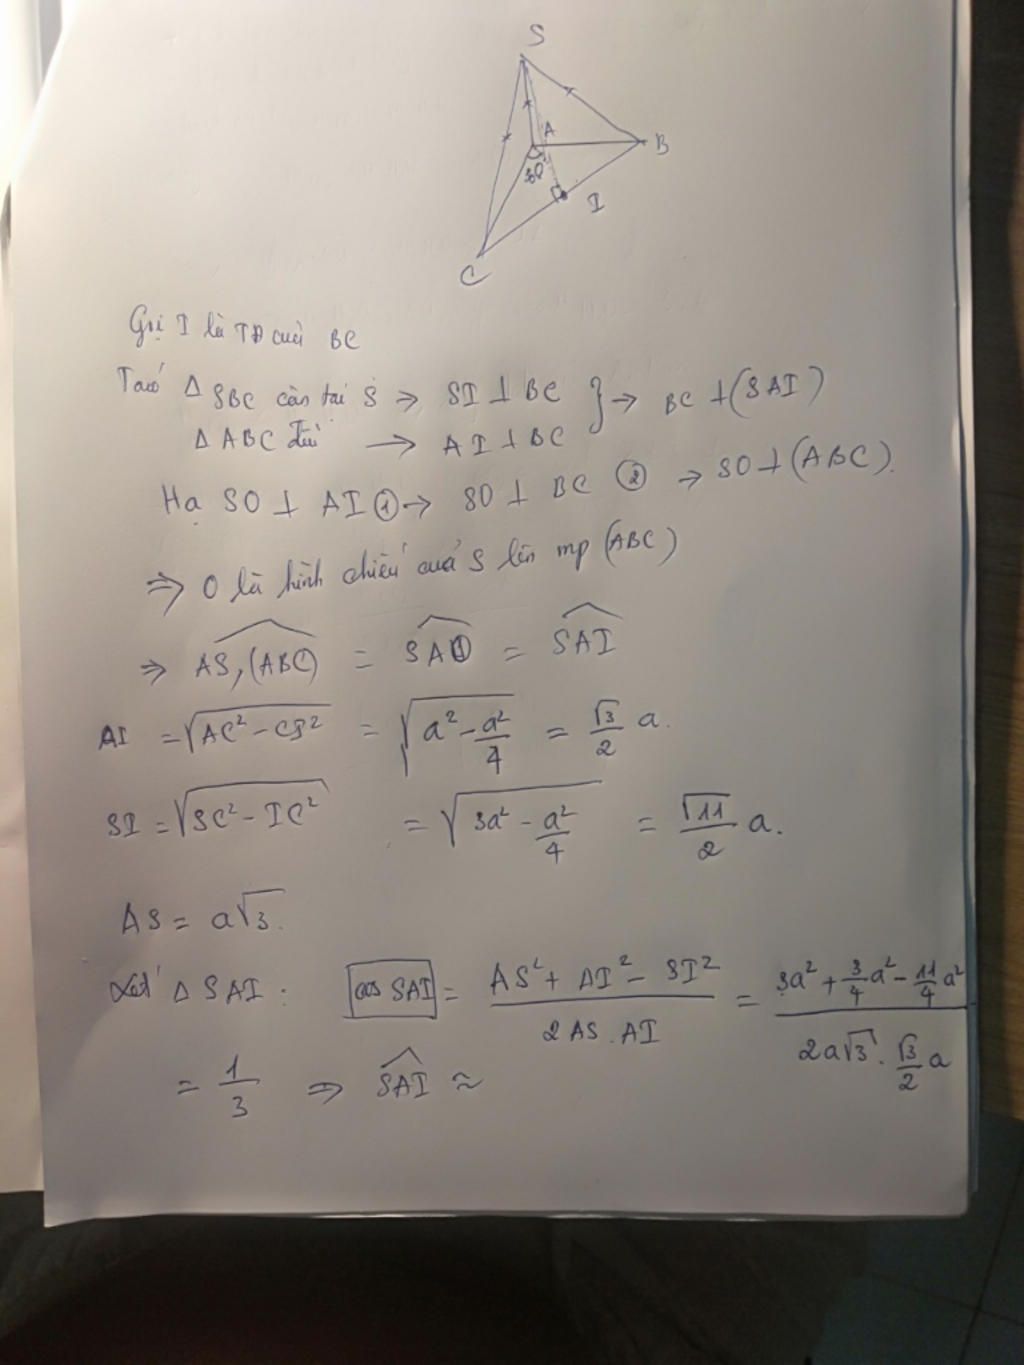 S
A
B
60°
I
C
Gọi I là TĐ của BC
Ta có Δ SBC cân tại S ⇒ SI ⊥ BC } → BC ⊥ (SAI)
Δ ABC đều → AI ⊥ BC
Hạ SO ⊥ AI ① → SO ⊥ BC ② → SO ⊥ (ABC).
⇒ O là hình chiếu của S lên mp (ABC)
⇒ \widehat{AS,(ABC)} = \widehat{SAO} = \widehat{SAI}
AI = √(AC² - CI²) = √(a² - a²/4) = √3/2 a.
SI = √(SC² - IC²) = √(3a² - a²/4) = √11/2 a.
AS = a√3.
Xét Δ SAI : cos SAI = (AS² + AI² - SI²)/(2 AS . AI) = (3a² + 3/4 a² - 11/4 a²)/(2a√3 . √3/2 a)
= 1/3 ⇒ \widehat{SAI} ≈